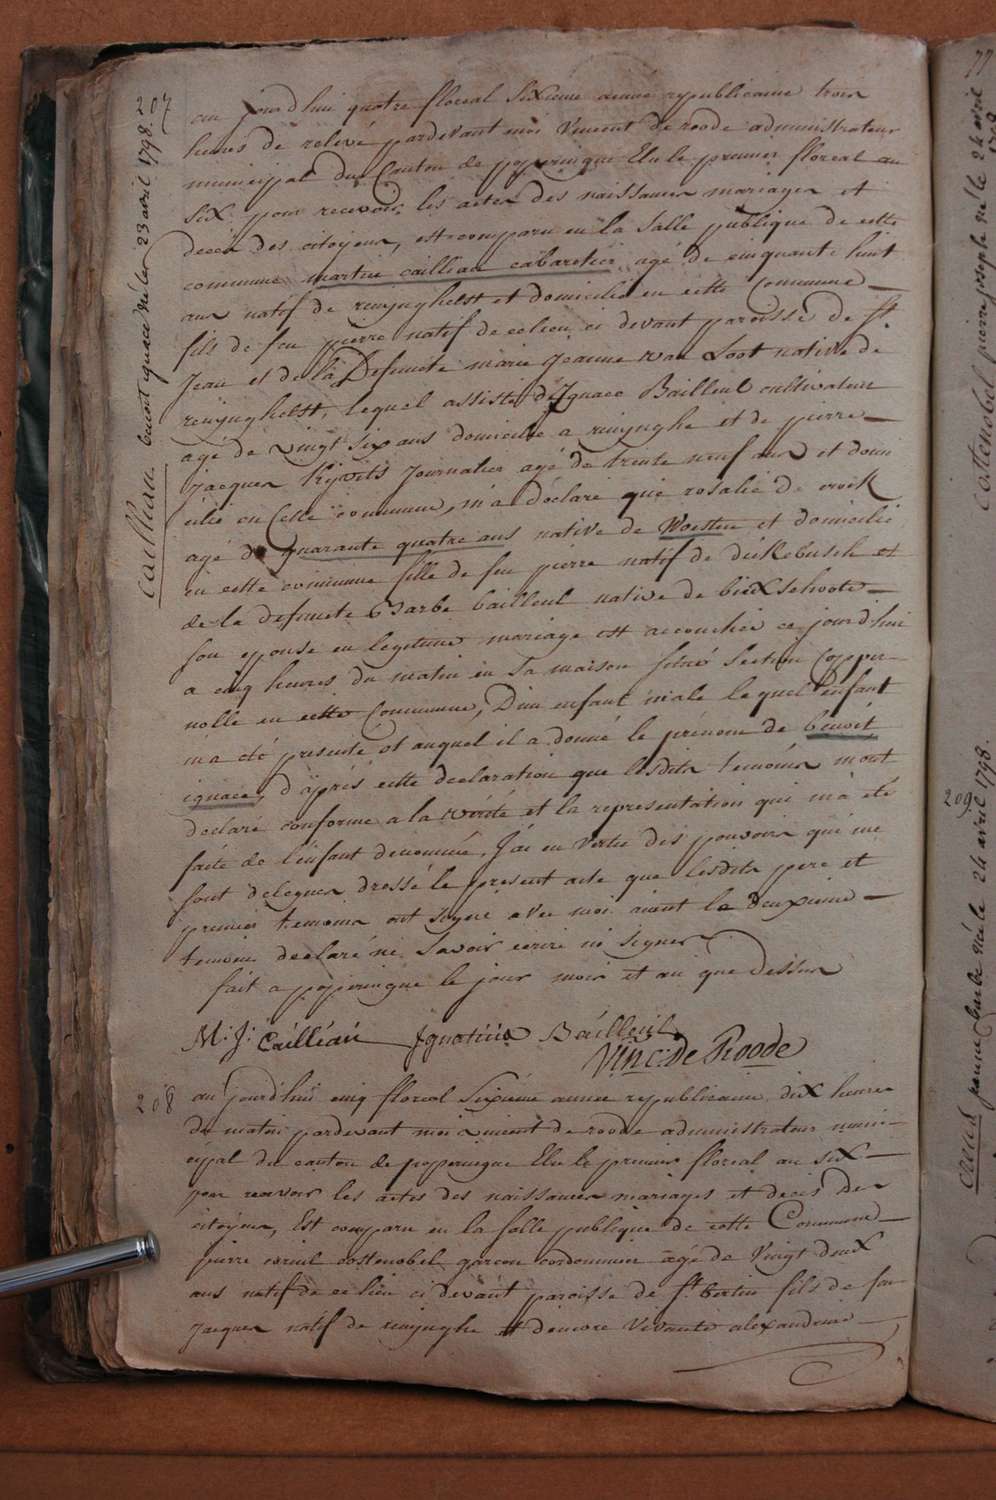 207
cailleau. benoit ignace né le 23 avril 1798.
au jourd'hui quatre floreal sixieme année republicaine trois
heures de relevé pardevant moi Vincent de roode administrateur
municipal du Canton de poperingue Elu le premier floreal an
six pour recevoir les actes des naissances mariages et
decès des citoyens, est comparu en la Salle publique de cette
commune martin cailleau cabaretier agé de cinquante huit
ans natif de reninghelst et domicilié en cette Commune
fils de feu pierre natif de ce lieu ci devant paroisse de St
Jean et de la Defuncte marie jeanne van Loot native de
reninghelst, lequel assisté d'Ignace Bailleul cultivateur
agé de vingt six ans domicilié a reninghe et de pierre
jacques journalier agé de trente neuf ans et domi
cilié en Cette commune, m'a déclaré que rosalie de croik
agé de quarante quatre ans native de Woesten et domicilié
en cette commune fille de feu pierre natif de dickebusch et
de la defuncte Barbe bailleul native de bixschoote
son epouse en legitime mariage est accouchée ce jourd'hui
a cinq heures du matin en sa maison situé Section Copper
nolle en cette Commune, D'un enfant male lequel enfant
m'a été presenté et auquel il a donné le prénom de benoit
ignace, d'après cette declaration que lesdits temoins m'ont
declaré conforme a la verité et la representation qui m'a été
faite de l'enfant denommé, J'ai en vertu des pouvoirs qui me
sont delegués dressé le present acte que lesdits pere et
premier temoin ont signé avec moi aiant le deuxieme
temoin declaré ne savoir ecrire ni signer
fait a poperingue le jour mois et an que dessus
M: J: Cailleau Ignatius Bailleul
Vinc: De Roode
208
au jourd'hui cinq floreal Sixieme année republicaine dix heures
du matin pardevant moi vincent de roode administrateur muni-
cipal du canton de poperingue Elu le premier floreal an six
pour recevoir les actes des naissances mariages et decès des
citoyens, Est comparu en la salle publique de cette Commune
pierre costenobel garcon cordonnier agé de Vingt deux
ans natif de ce lieu ci devant paroisse de St bertin fils de feu
Jacques natif de reninghe et d'encore vivante alexandrine
77
costenobel pierre joseph né le 24 avril
1798
209.
jeanne barbe née le 24 avril 1798.